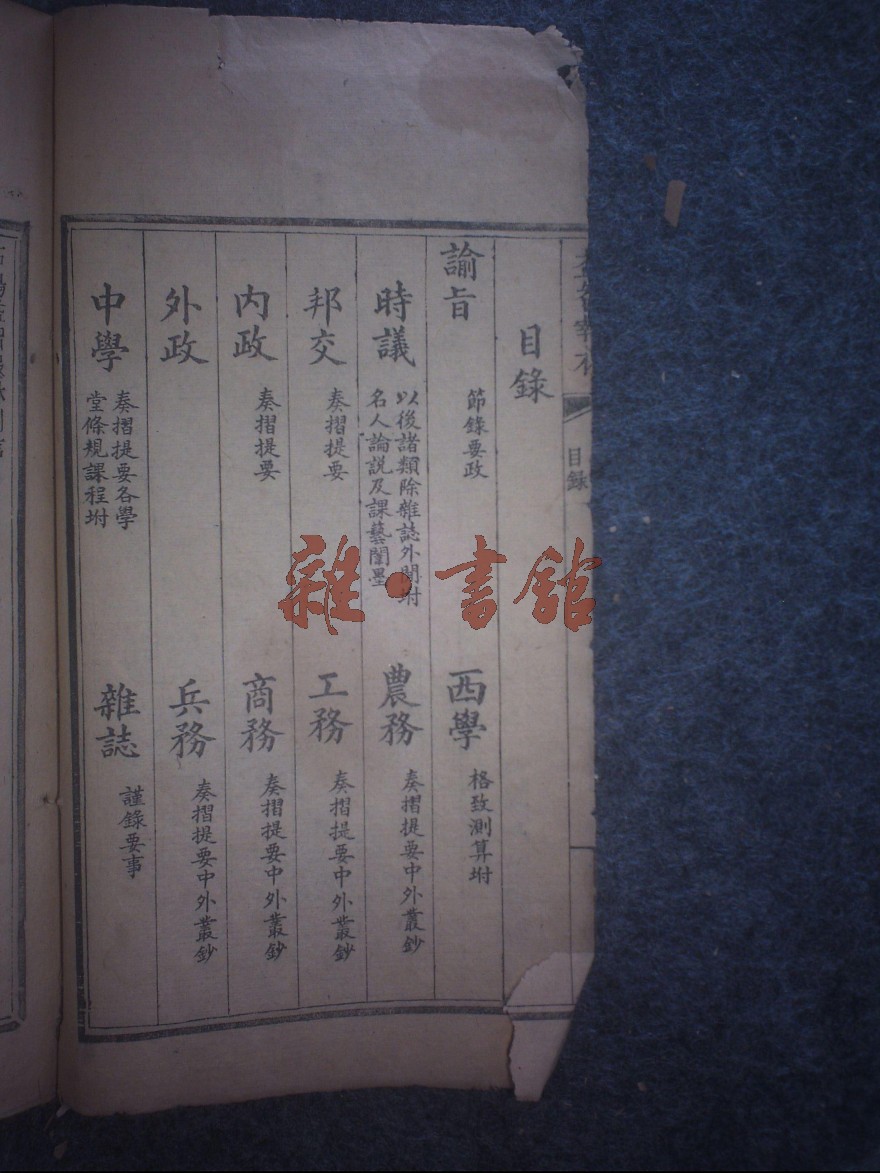 目錄
目錄
諭旨 節錄要政
西學 格致測算坿
時議 以後諸類除雜誌外間坿
名人論説及課藝闈墨
農務 奏摺提要中外叢鈔
邦交 奏摺提要
工務 奏摺提要中外叢鈔
内政 奏摺提要
商務 奏摺提要中外叢鈔
外政
兵務 奏摺提要中外叢鈔
中學 奏摺提要各學
堂條規課程坿
雜誌 謹錄要事
雜·書館